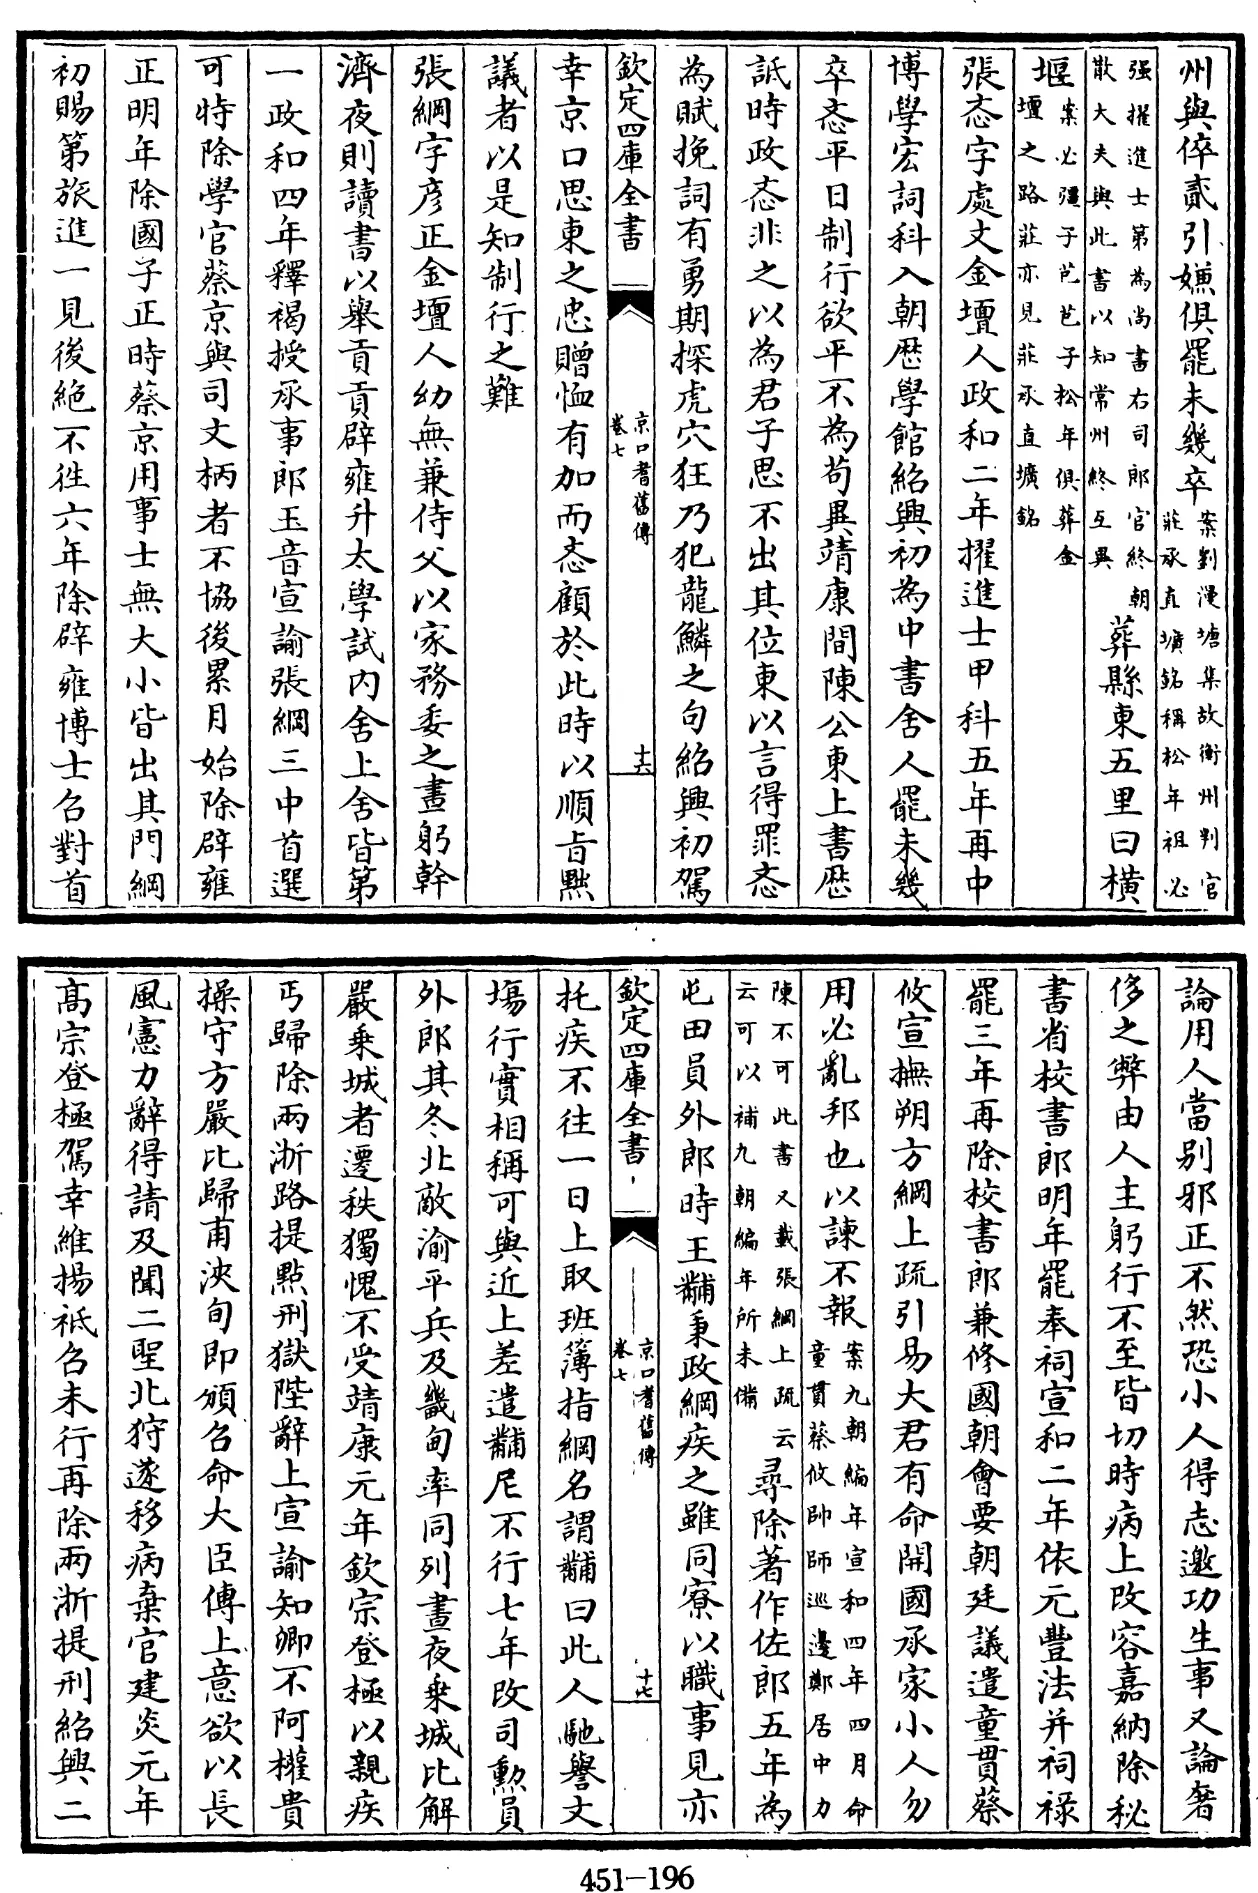 州與倅貳引嫌俱罷未幾卒案劉漫塘集故衡州判官莊承直壙銘稱松年祖必
强擢進士第為尚書右司郎官終朝散大夫與此書以知常州終互異葬縣東五里曰橫
堰案必彊子芑芑子松年俱葬金壇之路莊亦見莊承直壙銘
張忞字處文金壇人政和二年擢進士甲科五年再中
博學宏詞科入朝歷學館紹興初為中書舍人罷未幾
卒忞平日制行欲平不為苟異靖康間陳公東上書歷
詆時政忞非之以為君子思不出其位東以言得罪忞
為賦挽詞有勇期探虎穴狂乃犯龍鱗之句紹興初駕
欽定四庫全書 京口耆舊傳 卷七 十六
幸京口思東之忠贈恤有加而忞顧於此時以順㫖黜
議者以是知制行之難
張綱字彥正金壇人幼無兼侍父以家務委之晝躬幹
濟夜則讀書以舉貢貢辟雍升太學試内舍上舍皆第
一政和四年釋褐授承事郎玉音宣諭張綱三中首選
可特除學官蔡京與司文柄者不協後累月始除辟雍
正明年除國子正時蔡京用事士無大小皆出其門綱
初賜第旅進一見後絶不徃六年除辟雍博士召對首
論用人當别邪正不然恐小人得志邀功生事又論奢
侈之弊由人主躬行不至皆切時病上改容嘉納除秘
書省校書郎明年罷奉祠宣和二年依元豐法并祠禄
罷三年再除校書郎兼修國朝會要朝廷議遣童貫蔡
攸宣撫朔方綱上疏引易大君有命開國承家小人勿
用必亂邦也以諫不報案九朝編年宣和四年四月命童貫蔡攸帥師巡邊鄭居中力
陳不可此書又載張綱上疏云云可以補九朝編年所未備尋除著作佐郎五年為
屯田員外郎時王黼秉政綱疾之雖同寮以職事見亦
欽定四庫全書 京口耆舊傳 卷七 十七
托疾不往一日上取班簿指綱名謂黼曰此人馳譽文
塲行實相稱可與近上差遣黼尼不行七年改司勳員
外郎其冬北敵渝平兵及畿甸率同列晝夜乗城比解
嚴乗城者遷秩獨愧不受靖康元年欽宗登極以親疾
丐歸除兩浙路提點刑獄陛辭上宣諭知卿不阿權貴
操守方嚴比歸甫浹旬即頒召命大臣傳上意欲以長
風憲力辭得請及聞二聖北狩遂移病棄官建炎元年
高宗登極駕幸維揚祗召未行再除兩浙提刑紹興二
451-196